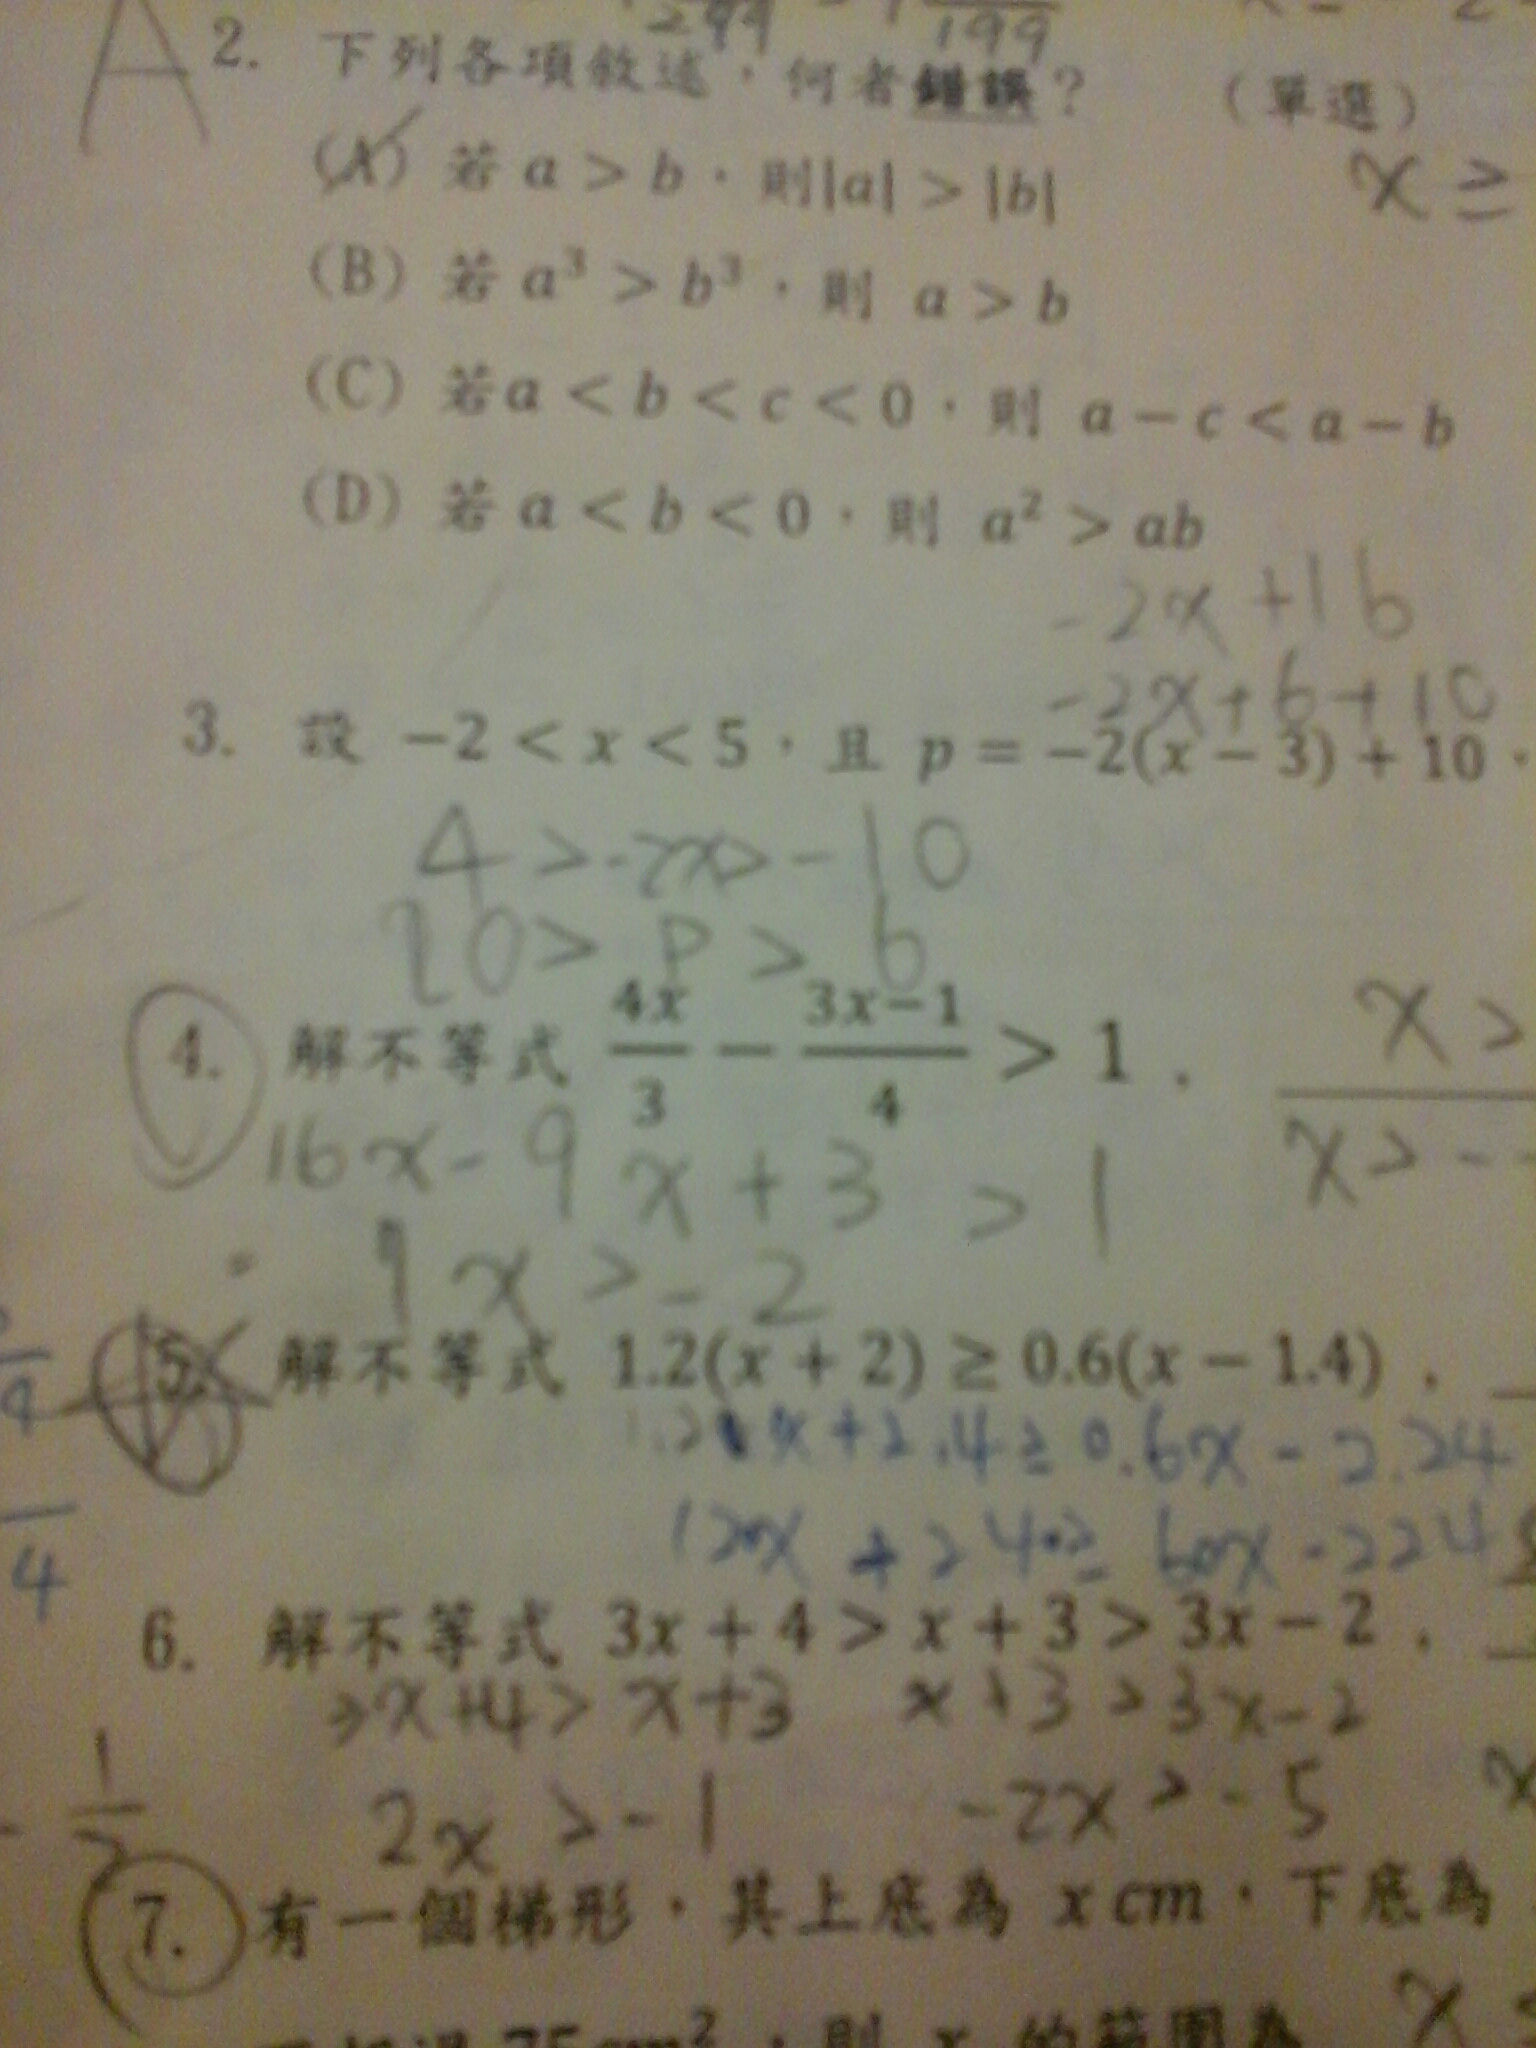 299 199
A
2. 下列各項敘述，何者錯誤？ (單選)
(A) 若 a > b，則|a| > |b|
x ≥
(B) 若 a³ > b³，則 a > b
(C) 若 a < b < c < 0，則 a − c < a − b
(D) 若 a < b < 0，則 a² > ab
-2x +16
-2x+6+10
3. 設 −2 < x < 5，且 p = −2(x − 3) + 10，
4 > -2x > -10
20 > P > 6
4. 解不等式 4x/3 − (3x−1)/4 > 1．
x >
16x - 9x + 3 > 1
x > -
7x > -2
5. 解不等式 1.2(x + 2) ≥ 0.6(x − 1.4)．
9
1.2x + 2.4 ≥ 0.6x - 2.24
120x + 240 ≥ 60x - 224
4
6. 解不等式 3x + 4 > x + 3 > 3x − 2．
3x+4 > x+3 x+3 > 3x-2
- 1/2
2x > -1 -2x > -5 x
7. 有一個梯形，其上底為 x cm，下底為
x
過 75 cm²，則 x 的範圍為